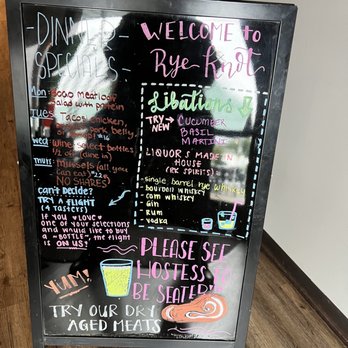 -DINNER-
SPECIALS-
Mon: Meatloaf
Salad with protein
Tues:
Tacos chicken,
pork belly,
Wed:
Wine select bottles
1/2 off (dine in)
Thurs: Mussels (all you
can eat) 22
NO SHARES
Can't Decide?
TRY A FLIGHT
(4 TASTERS)
If you ♥LOVE♥
one of your selections
and would like to buy
a ~BOTTLE~, the flight
is ON US!
YUM!
WELCOME to
Rye-Knot
Libations
TRY→ CUCUMBER
NEW BASIL
MARTINI
LIQUOR'S MADE IN
HOUSE
(RK SPIRITS)
-single barrel rye whiskey
-bourbon whiskey
-corn whiskey
-Gin
-Rum
-vodka
PLEASE SEE
HOSTESS TO
BE SEATED
TRY OUR DRY
AGED MEATS